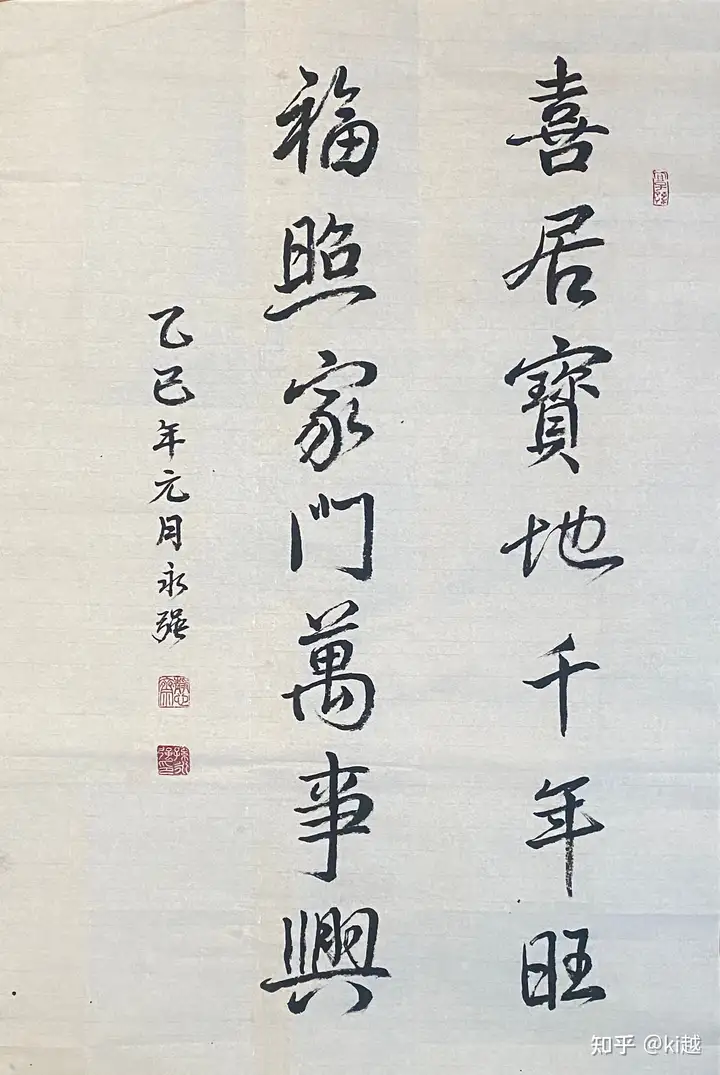 喜居寶地千年旺
福照家門萬事興
乙巳年元月永强
知乎 @ki越